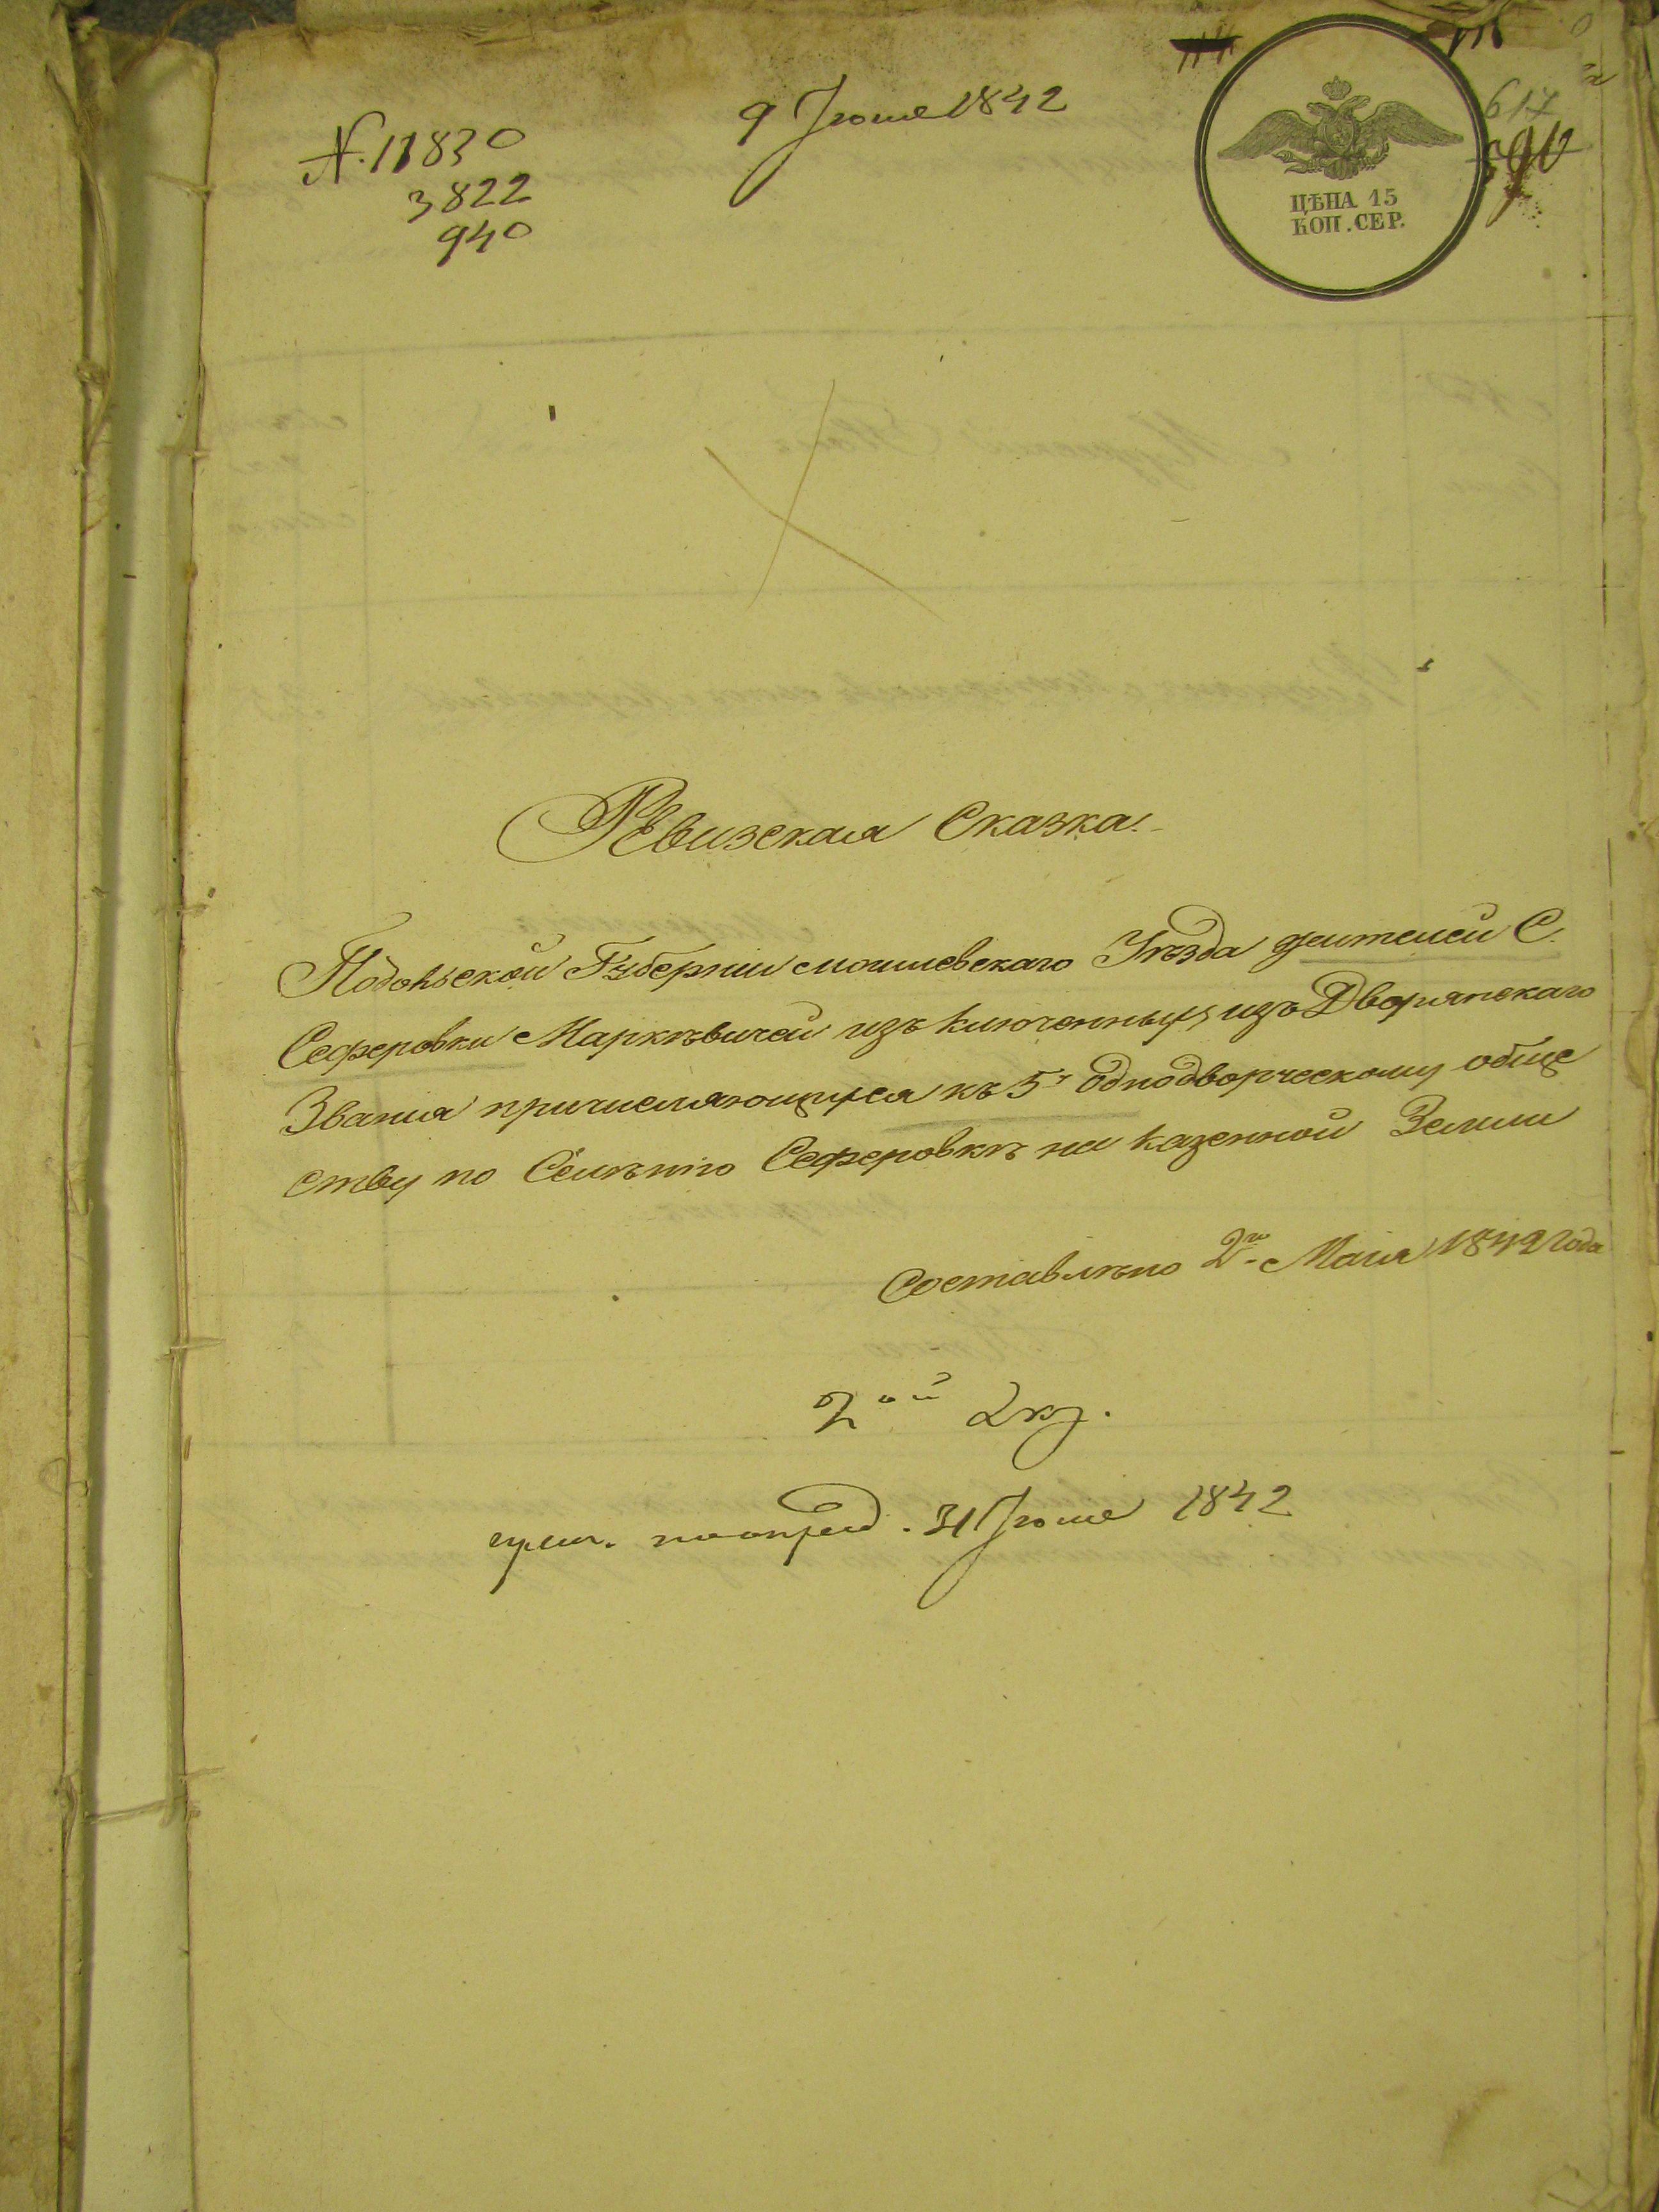 № 11830
3822
940
9 Іюня 1842
617
ЦѢНА 15
КОП. СЕР.
Ревизская Сказка.
Подольской Губерніи могилевскаго Уѣзда жителей С.
Сеферовки Маркѣвичей изъ ключенныхъ изъ Дворянскаго
Званія причисляющихся къ 5у однодворческому обще
ству по Селѣнію Сеферовкѣ на казенной Земли
Составлѣно 2го Маія 1842 Года
2ой Экз.
1842